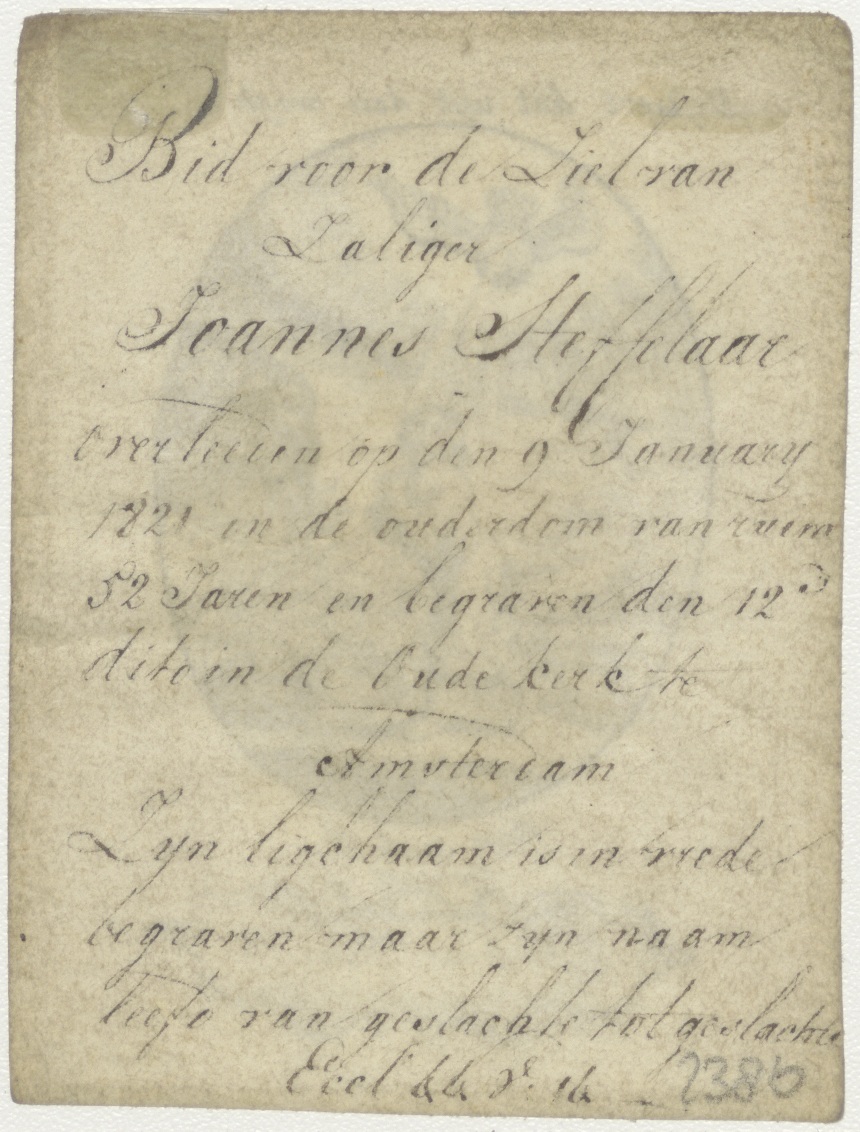 Bid voor de Ziel van
Zaliger
Joannes Steffelaar
overleeden op den 9 January
1821 in de ouderdom van ruim
52 Jaren en begraven den 12d
dito in de Oude kerk te
Amsterdam
Zyn ligchaam is in vrede
begraven maar zyn naam
leefd van geslachte tot geslachte
Eccl 44 V. 14
2386